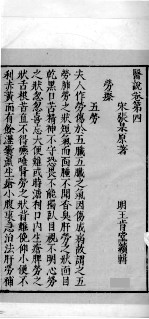 醫說卷第四
宋張杲原著
明王肯堂編輯
勞瘵
五勞
夫人作勞傷於五臟五臟之氣因傷成病故謂之五
勞肺勞之狀短氣而面腫不聞香臭肝勞之狀面目
乾黑口苦精神不守恐畏不能獨臥目視不明心勞
之狀忽忽喜忘大便難或時溏利口內生瘡脾勞之
狀舌根苦直不得嚥唾腎勞之狀背難俛仰小便不
利赤黃而有餘瀝囊濕生瘡小腹裏急治法肝勞補